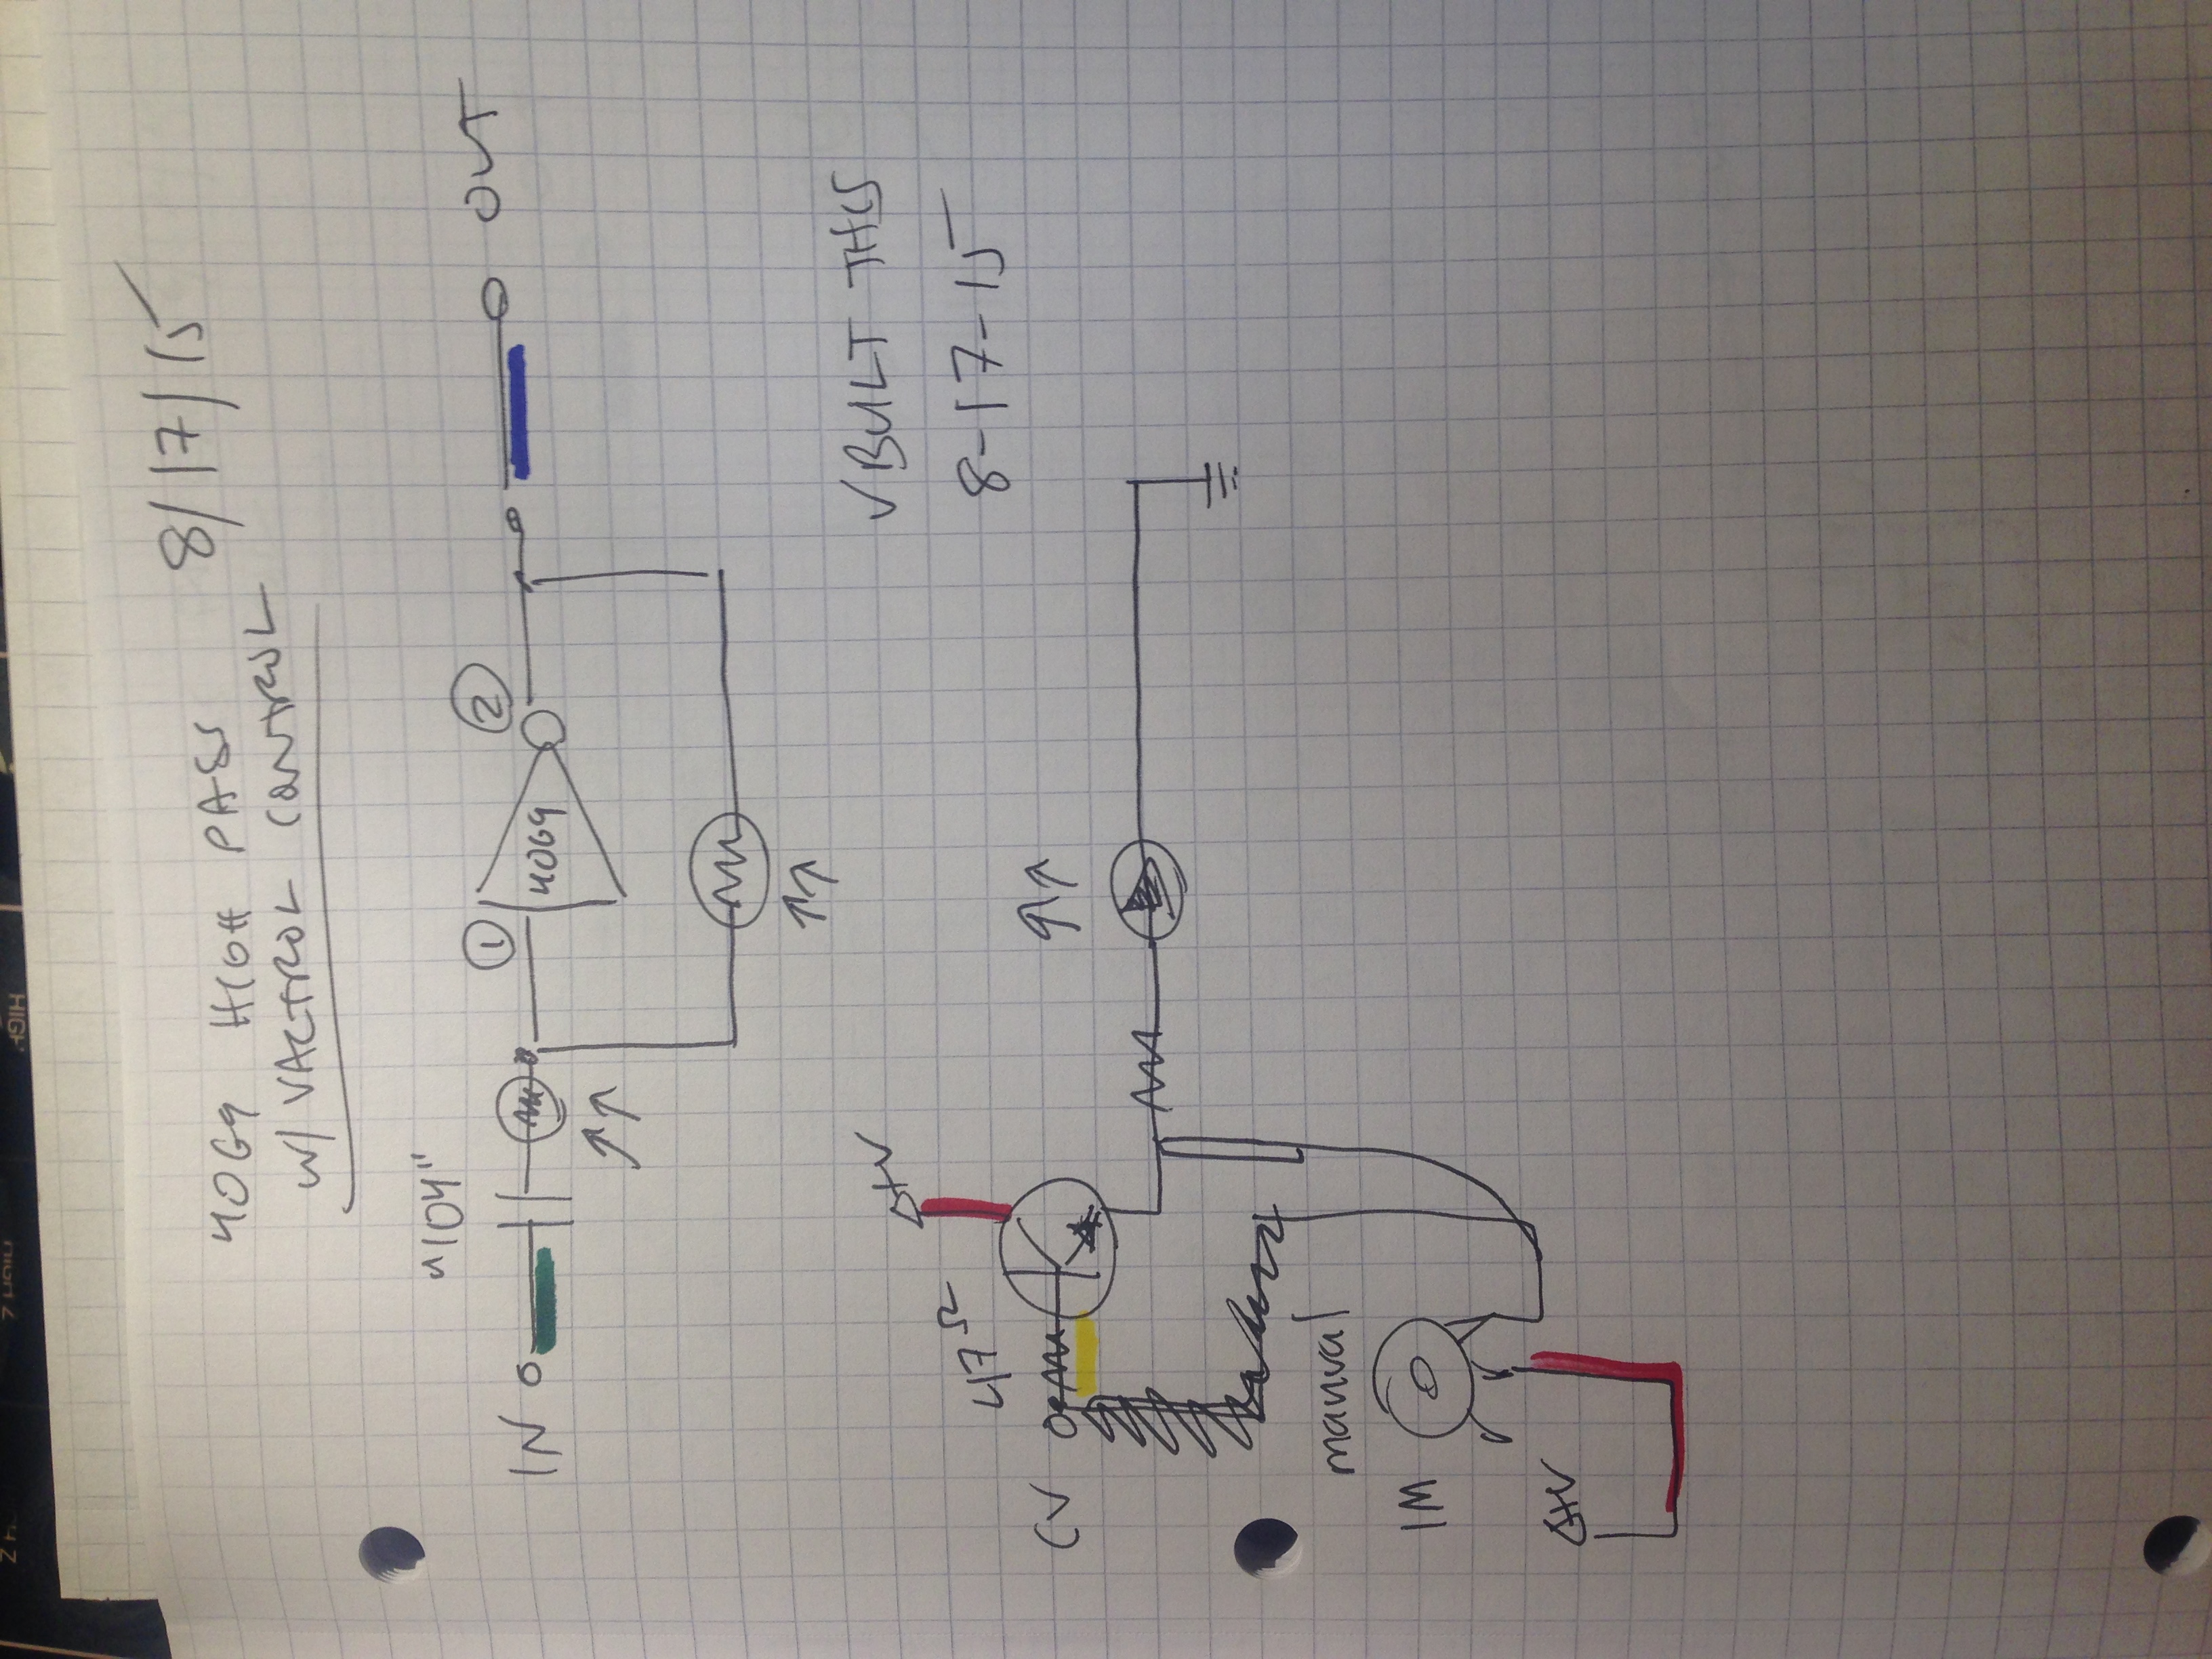 HIGH Z
HIGH Z
HIGH
8/17/15
4069 HIGH PASS
W/ VACTROL CONTROL
"104"
IN
1
4069
2
OUT
+V
√ BUILT THIS
8-17-15
47Ω
CV
manual
1M
+V